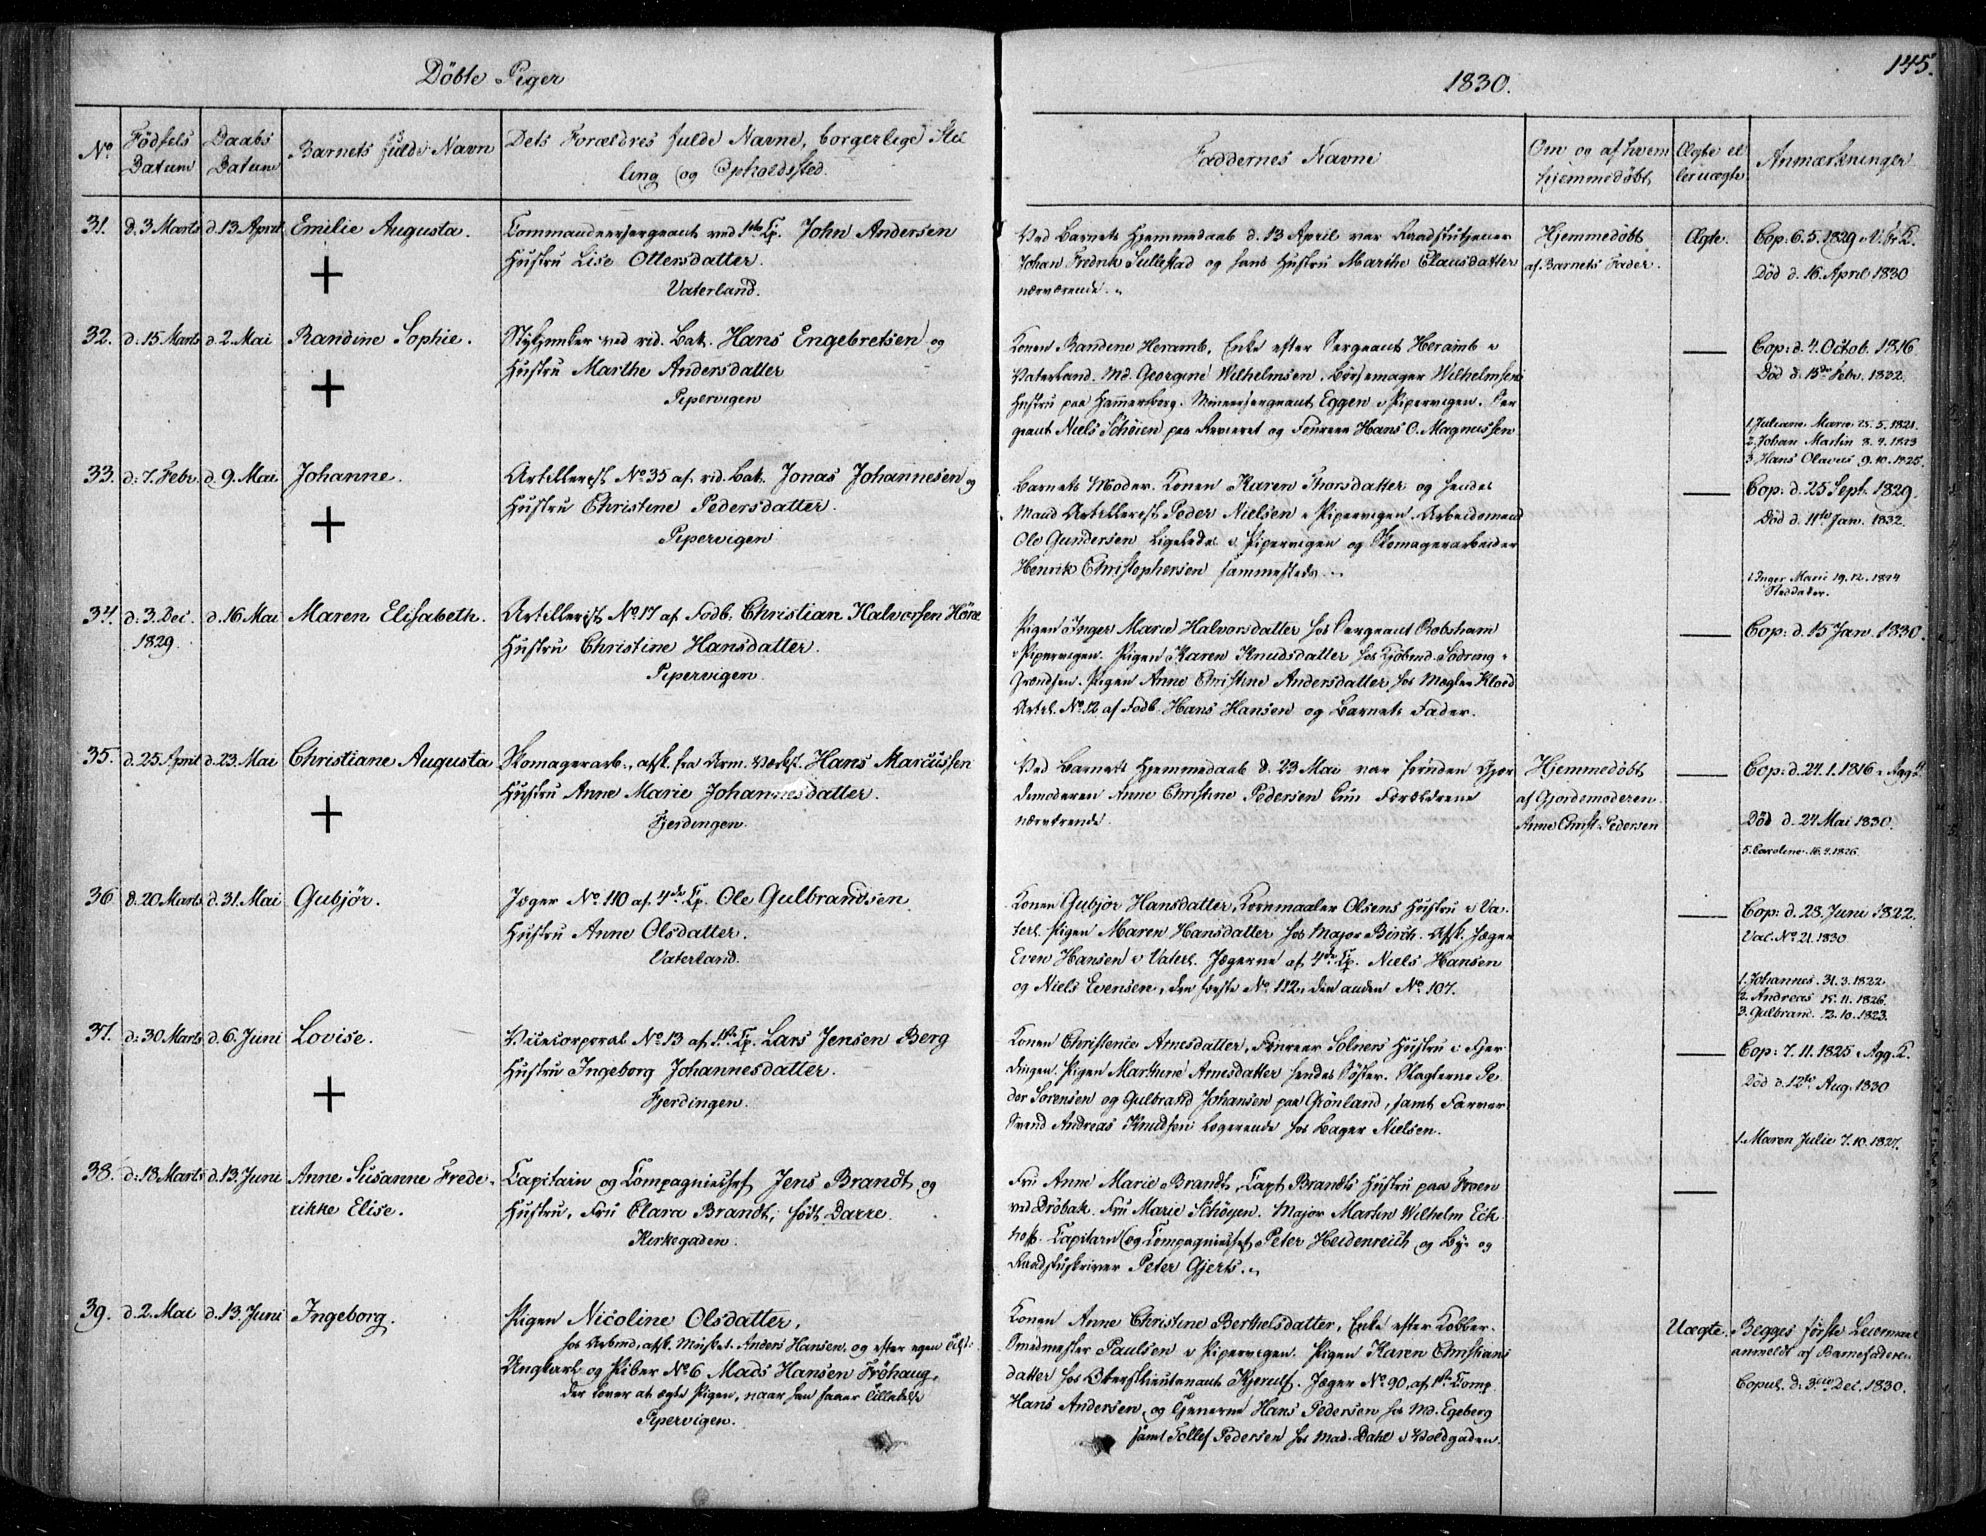 Döbte Piger
1830.
145.
No.
Födsels Datum
Daabs Datum
Barnets fulde Navn
Dets Forældres fulde Navne, borgerlige Stil
ling og Opholdssted.
Faddernes Navne
Om og af hvem
hjemmedöbt
Ægte el
ler uægte
Anmærkninger
31.
d. 3 Marts
d. 13 April
Emilie Augusta.
Commandeersergeant ved 1ste Cp. John Andersen
Hustru Lise Ottersdatter.
Vaterland.
Ved Barnets Hjemmedaab d. 13 April var Raadstutjener
Johan Fredrik Sullestad og hans Hustru Marthe Clausdatter
nærværende.
Hjemmedöbt
af Barnets Fader.
Ægte.
Cop: 6.5.1829
Död d. 16 April 1830
32.
d. 15 Marts
d. 2 Mai
Randine Sophie.
Stykjunker ved rid. Bat. Hans Engebretsen og
Hustru Marthe Andersdatter
Pipervigen
Konen Randine Heramb, Enke efter Sergeant Heramb i
Vaterland. Md. Georgine Wilhelmsen, Börsemager Wilhelmsens
Hustru paa Hammersborg. Mineersergeant Eggen i Pipervigen. Ser
geant Niels Schöien paa Revieret og Foureer Hans O. Magnussen
—
Cop: d. 4. Octob. 1816
Död d. 15de Febr. 1832.
1. Juliane Marie 25.5.1821.
2. Johan Martin 8.4.1823
3. Hans Olavus 9.10.1825.
33.
d. 7. Febr.
d. 9. Mai
Johanne.
Artillerist No 35 af rid. Bat. Jonas Johannesen og
Hustru Christine Pedersdatter.
Pipervigen
Barnets Moder. Konen Karen Thorsdatter og hendes
Mand Artillerist Peder Nielsen i Pipervigen. Arbeidsmand
Ole Gundersen ligeledes i Pipervigen og Skomagerarbeider
Henrik Christophersen sammesteds.
—
Cop: d. 25 Sept. 1829.
Död d. 11te Jan. 1832.
1. Inger Marie 19.12.1824
34.
d. 3. Dec.
1829.
d. 16 Mai
Maren Elisabeth.
Artillerist No 17 af Fodb. Christian Halvorsen Höne
Hustru Christine Hansdatter.
Pipervigen.
Pigen Inger Marie Halvorsdatter hos Sergeant Robsham
i Pipervigen. Pigen Karen Knudsdatter hos Kjöbmd. Södring i
Grændsen. Pigen Anne Christine Andersdatter hos Mægler Kloed
Artil. No. 12 af Fodb. Hans Hansen og Barnets Fader.
—
Cop: d. 15 Jan. 1830.
35.
d. 25 April
d. 23. Mai
Christiane Augusta
Skomagerarb., afsk. fra Arm. Værkst. Hans Marcussen
Hustru Anne Marie Johannesdatter.
Fjerdingen.
Ved Barnets Hjemmedaab d. 23 Mai var foruden Gjor
demoderen Anne Christine Pedersen kun Forældrene
nærværende.
Hjemmedöbt
af Gjordemoderen
Anne Christ. Pedersen
—
Cop: d. 24.1.1816
Död d. 24 Mai 1830.
5. Caroline 16.4.1826
36
d. 20 Marts
d. 31. Mai
Gubjör.
Jæger No. 110 af 4de Cp. Ole Gulbrandsen
Hustru Anne Olsdatter.
Vaterland.
Konen Gubjör Hansdatter, Kornmaaler Olsens Hustru i Va-
terl. Pigen Maren Hansdatter hos Major Birch. Afsk. Jæger
Even Hansen i Vaterl. Jægerne af 4de Cp. Niels Hansen
og Niels Evensen, den förste No. 112, den anden No. 107.
—
Cop: d. 28. Juni 1822.
Val. No. 21. 1830.
1. Johannes. 31.3.1822.
2. Andreas 15.11.1826.
3. Gulbrand 12.10.1823.
37.
d. 30 Marts
d. 6. Juni
Lovise.
Vicecorporal No. 13 af 1ste Cp. Lars Jensen Berg
Hustru Ingeborg Johannesdatter.
Fjerdingen.
Konen Christence Arnesdatter, Foureer Solners Hustru i Fjer
dingen. Pigen Marthine Arnesdatter hendes Söster. Slagterne Pe-
der Sörensen og Gulbrand Johansen paa Grönland, samt Farver
Svend Andreas Knudsen logerende hos Bager Nielsen.
—
Cop: 7.11.1825 Agg. K.
Död d. 12te Aug. 1830
1. Maren Julie 7.10.1827.
38.
d. 18 Marts
d. 13. Juni
Anne Susanne Frede-
rikke Elise.
Capitain og Compagniechef Jens Brandt og
Hustru, Fru Clara Brandt, född Darre.
Kirkegaden.
Fru Anne Marie Brandt, Capt. Brandts Hustru paa Froen
ved Dröbak. Fru Marie Schöyen. Major Martin Wilhelm Eck
hoff. Capitain og Compagniechef Peter Heidenreich og By- og
Raadstuskriver Peter Gjerts.
—
39.
d. 2. Mai
d. 13. Juni
Ingeborg.
Pigen Nicoline Olsdatter,
hos Arbmd, afsk. Musket. Anders Hansen, og efter egen Tilst.
Ungkarl og Piber No 6 Mads Hansen Fröhaug,
der lover at ægte Pigen, naar han faaer Tilladelse
Pipervigen.
Konen Anne Christine Berthelsdatter, Enke efter Kobber-
smedmester Paulsen i Pipervigen. Pigen Karen Christians
datter hos Oberstlieutenant Kjerulf. Jæger No. 90 af 1ste Comp.
Hans Andersen, og Tjenerne Hans Pedersen hos Md. Egeberg
samt Tollef Pedersen hos Mad. Dahl i Voldgaden.
Uægte.
Begges förste Leiermaal
anmeldt af Barnefaderen
Copul. d. 3die Dec. 1830.